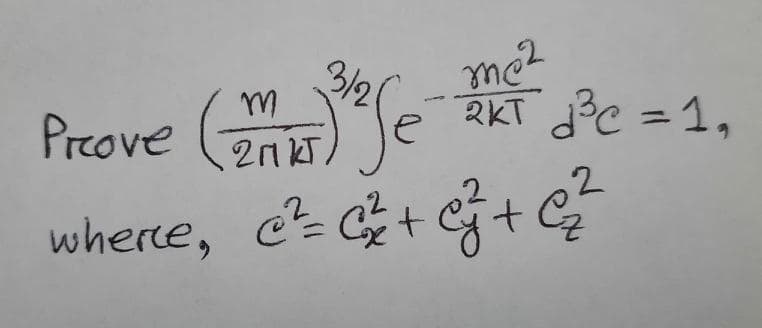 Prove (m/2πkT)^3/2 ∫e^-mc²/2kT d³c = 1,
where, c² = cx² + cy² + cz²